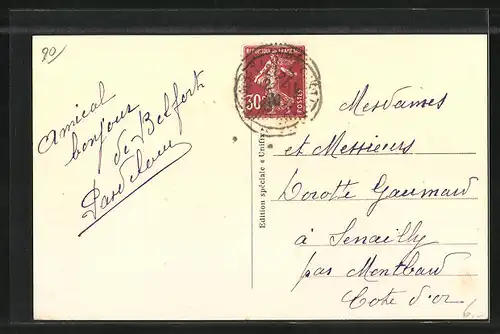 20
Amical
bonjour
de Belfort
REPUBLIQUE FRANÇAISE
30c
POSTES
Edition spéciale « Unifix »
Mesdames
et Messieurs
Dorotte Gaumard
à Senailly
par Montbard
Côte d'or
6.-